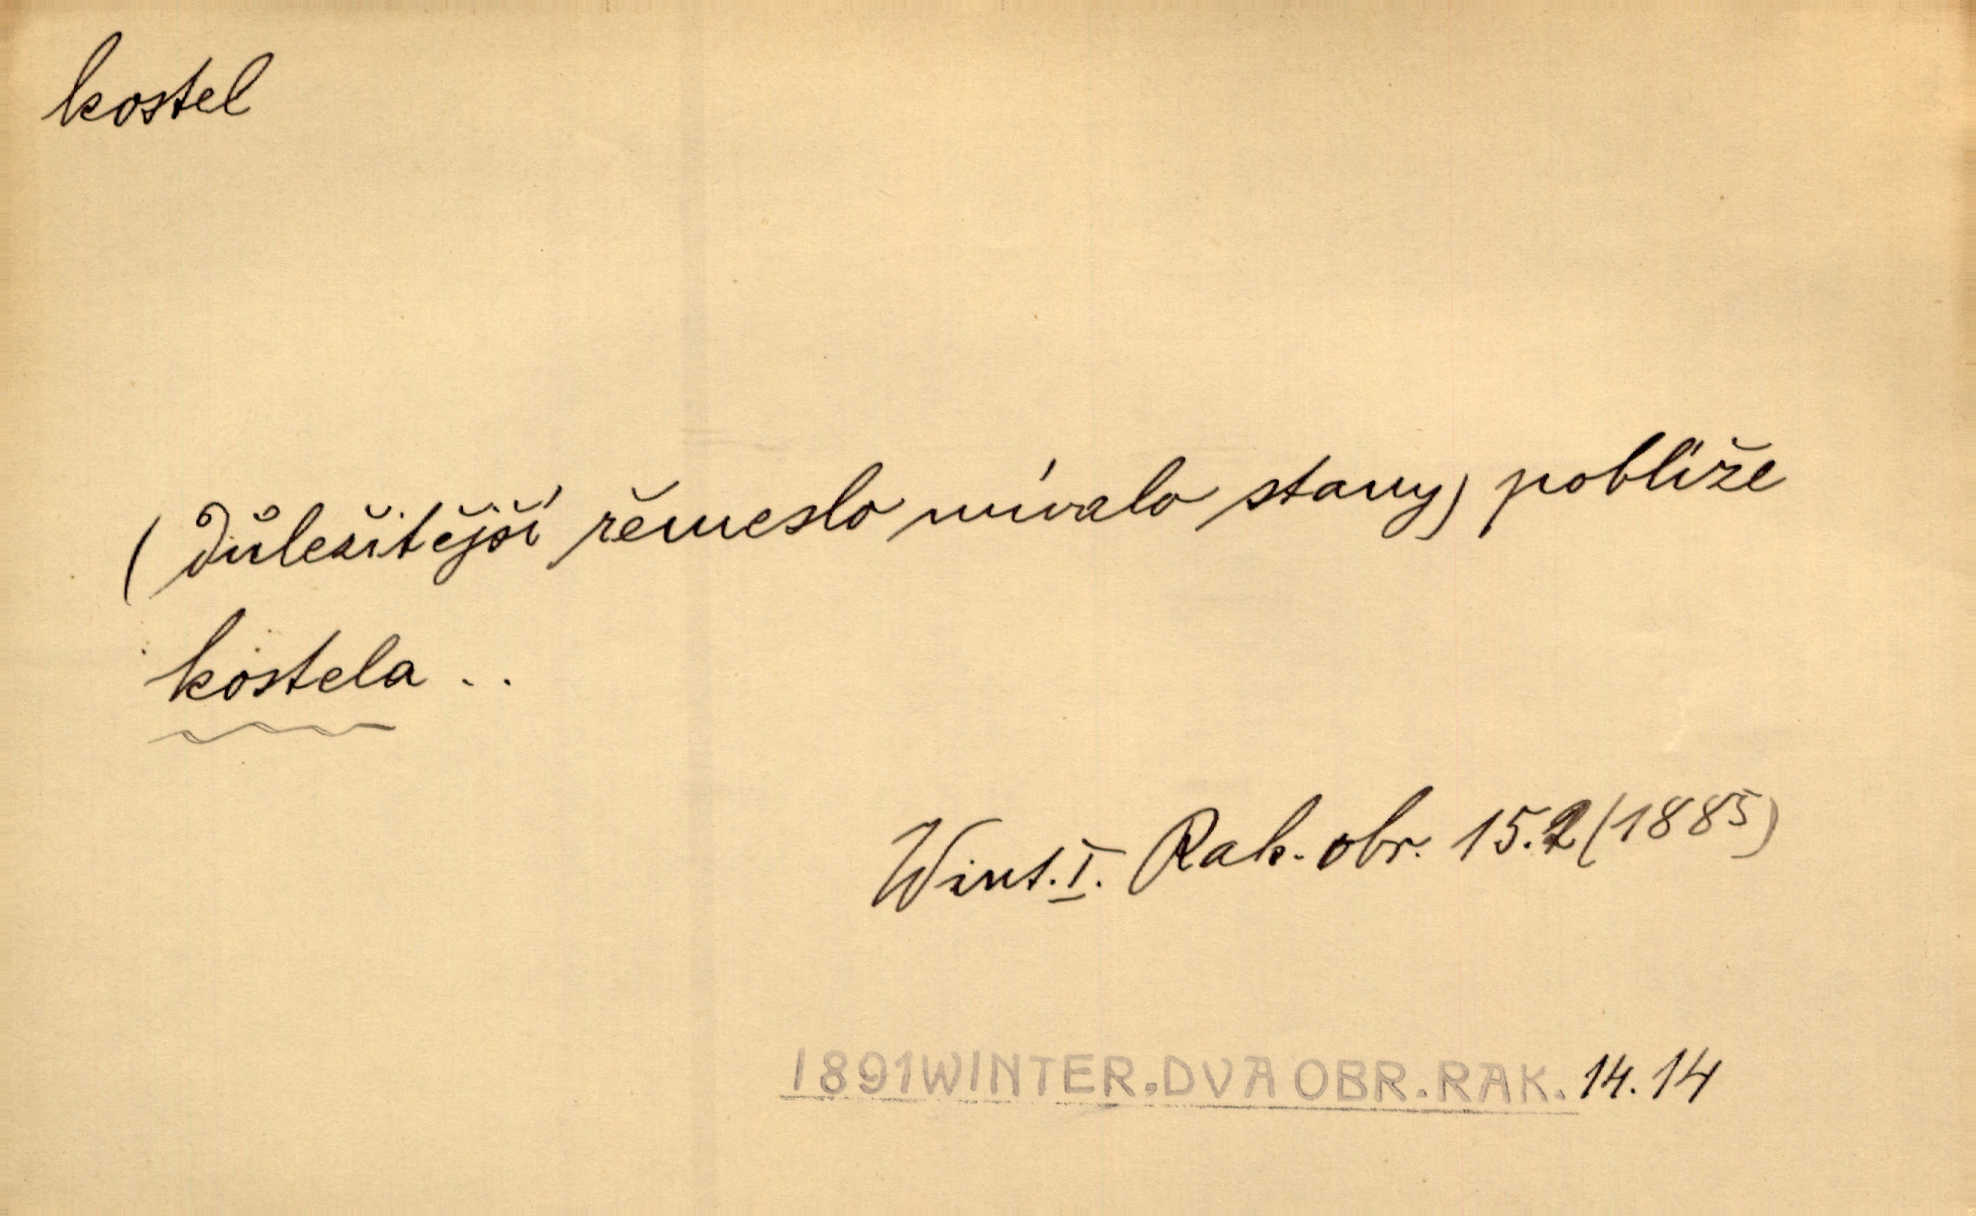 kostel
(Důležitější řemeslo mívalo stany) poblíže
kostela ..
Wint. I. Rak. obr. 15.2 (1885)
1891 WINTER. DVA OBR. RAK. 14.14